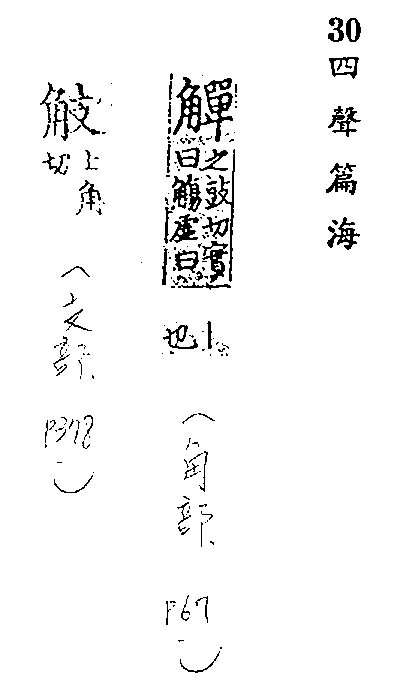 30 四聲篇海
觶
之豉切實
曰觴虛曰
丨
也
(角部 P67)
上角
切
(支部 P378)